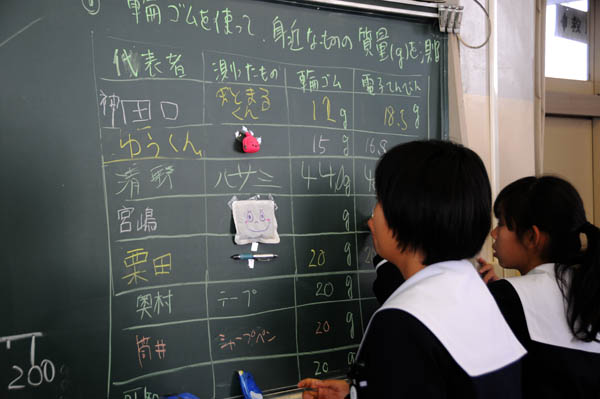 輪ゴムを使って、身近なものの質量(g)を測
代表者 測ったもの 輪ゴム 電子てんびん
神田口 おとまるくん 12g 18.5g
ゆうくん 15g 16.8
清野 ハサミ 440g
宮嶋 g
栗田 20g
奥村 テープ 20g
筒井 シャープペン 20g
20g
200